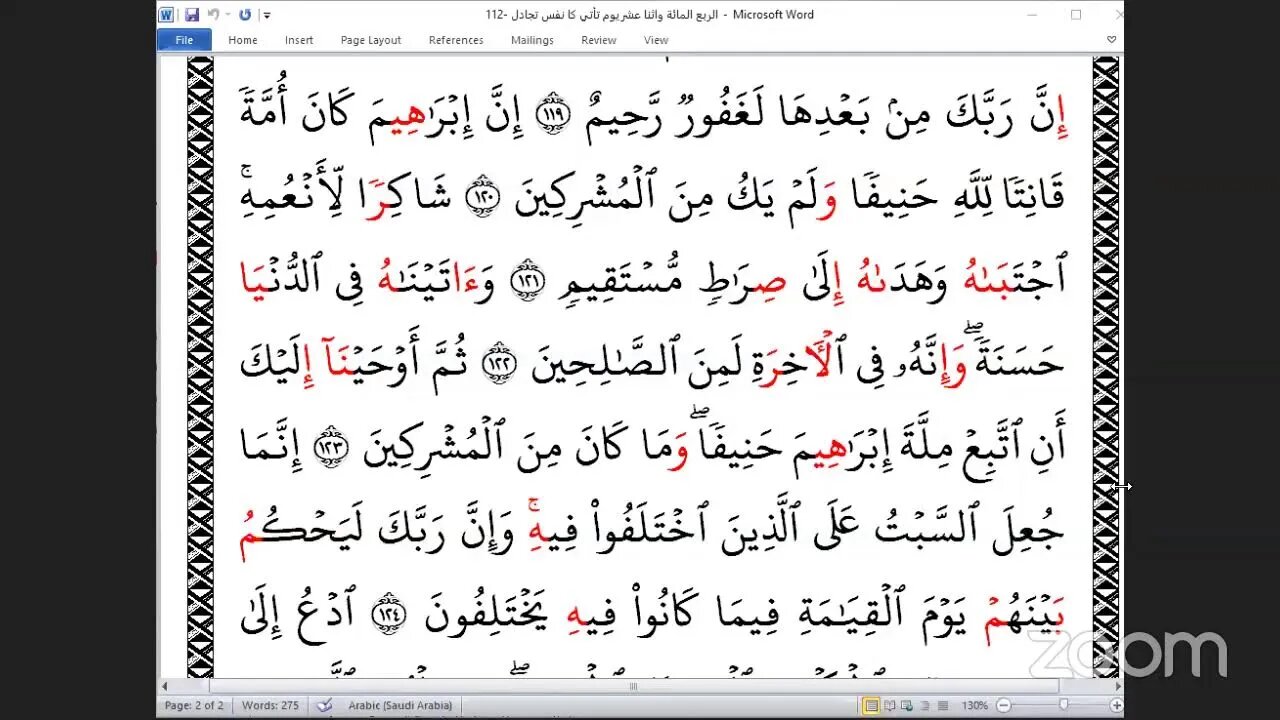 الربع المائة واثنا عشريوم تأتي كا نفس تجادل -112 - Microsoft Word
File Home Insert Page Layout References Mailings Review View
إِنَّ رَبَّكَ مِنۢ بَعۡدِهَا لَغَفُورٞ رَّحِيمٌ ١١٩ إِنَّ إِبۡرَٰهِيمَ كَانَ أُمَّةٗ
قَانِتٗا لِّلَّهِ حَنِيفٗا وَلَمۡ يَكُ مِنَ ٱلۡمُشۡرِكِينَ ١٢٠ شَاكِرٗا لِّأَنۡعُمِهِۚ
ٱجۡتَبَىٰهُ وَهَدَىٰهُ إِلَىٰ صِرَٰطٖ مُّسۡتَقِيمٖ ١٢١ وَءَاتَيۡنَٰهُ فِي ٱلدُّنۡيَا
حَسَنَةٗۖ وَإِنَّهُۥ فِي ٱلۡأٓخِرَةِ لَمِنَ ٱلصَّٰلِحِينَ ١٢٢ ثُمَّ أَوۡحَيۡنَآ إِلَيۡكَ
أَنِ ٱتَّبِعۡ مِلَّةَ إِبۡرَٰهِيمَ حَنِيفٗاۖ وَمَا كَانَ مِنَ ٱلۡمُشۡرِكِينَ ١٢٣ إِنَّمَا
جُعِلَ ٱلسَّبۡتُ عَلَى ٱلَّذِينَ ٱخۡتَلَفُواْ فِيهِۚ وَإِنَّ رَبَّكَ لَيَحۡكُمُ
بَيۡنَهُمۡ يَوۡمَ ٱلۡقِيَٰمَةِ فِيمَا كَانُواْ فِيهِ يَخۡتَلِفُونَ ١٢٤ ٱدۡعُ إِلَىٰ
zoom
Page: 2 of 2 Words: 275 Arabic (Saudi Arabia) 130%